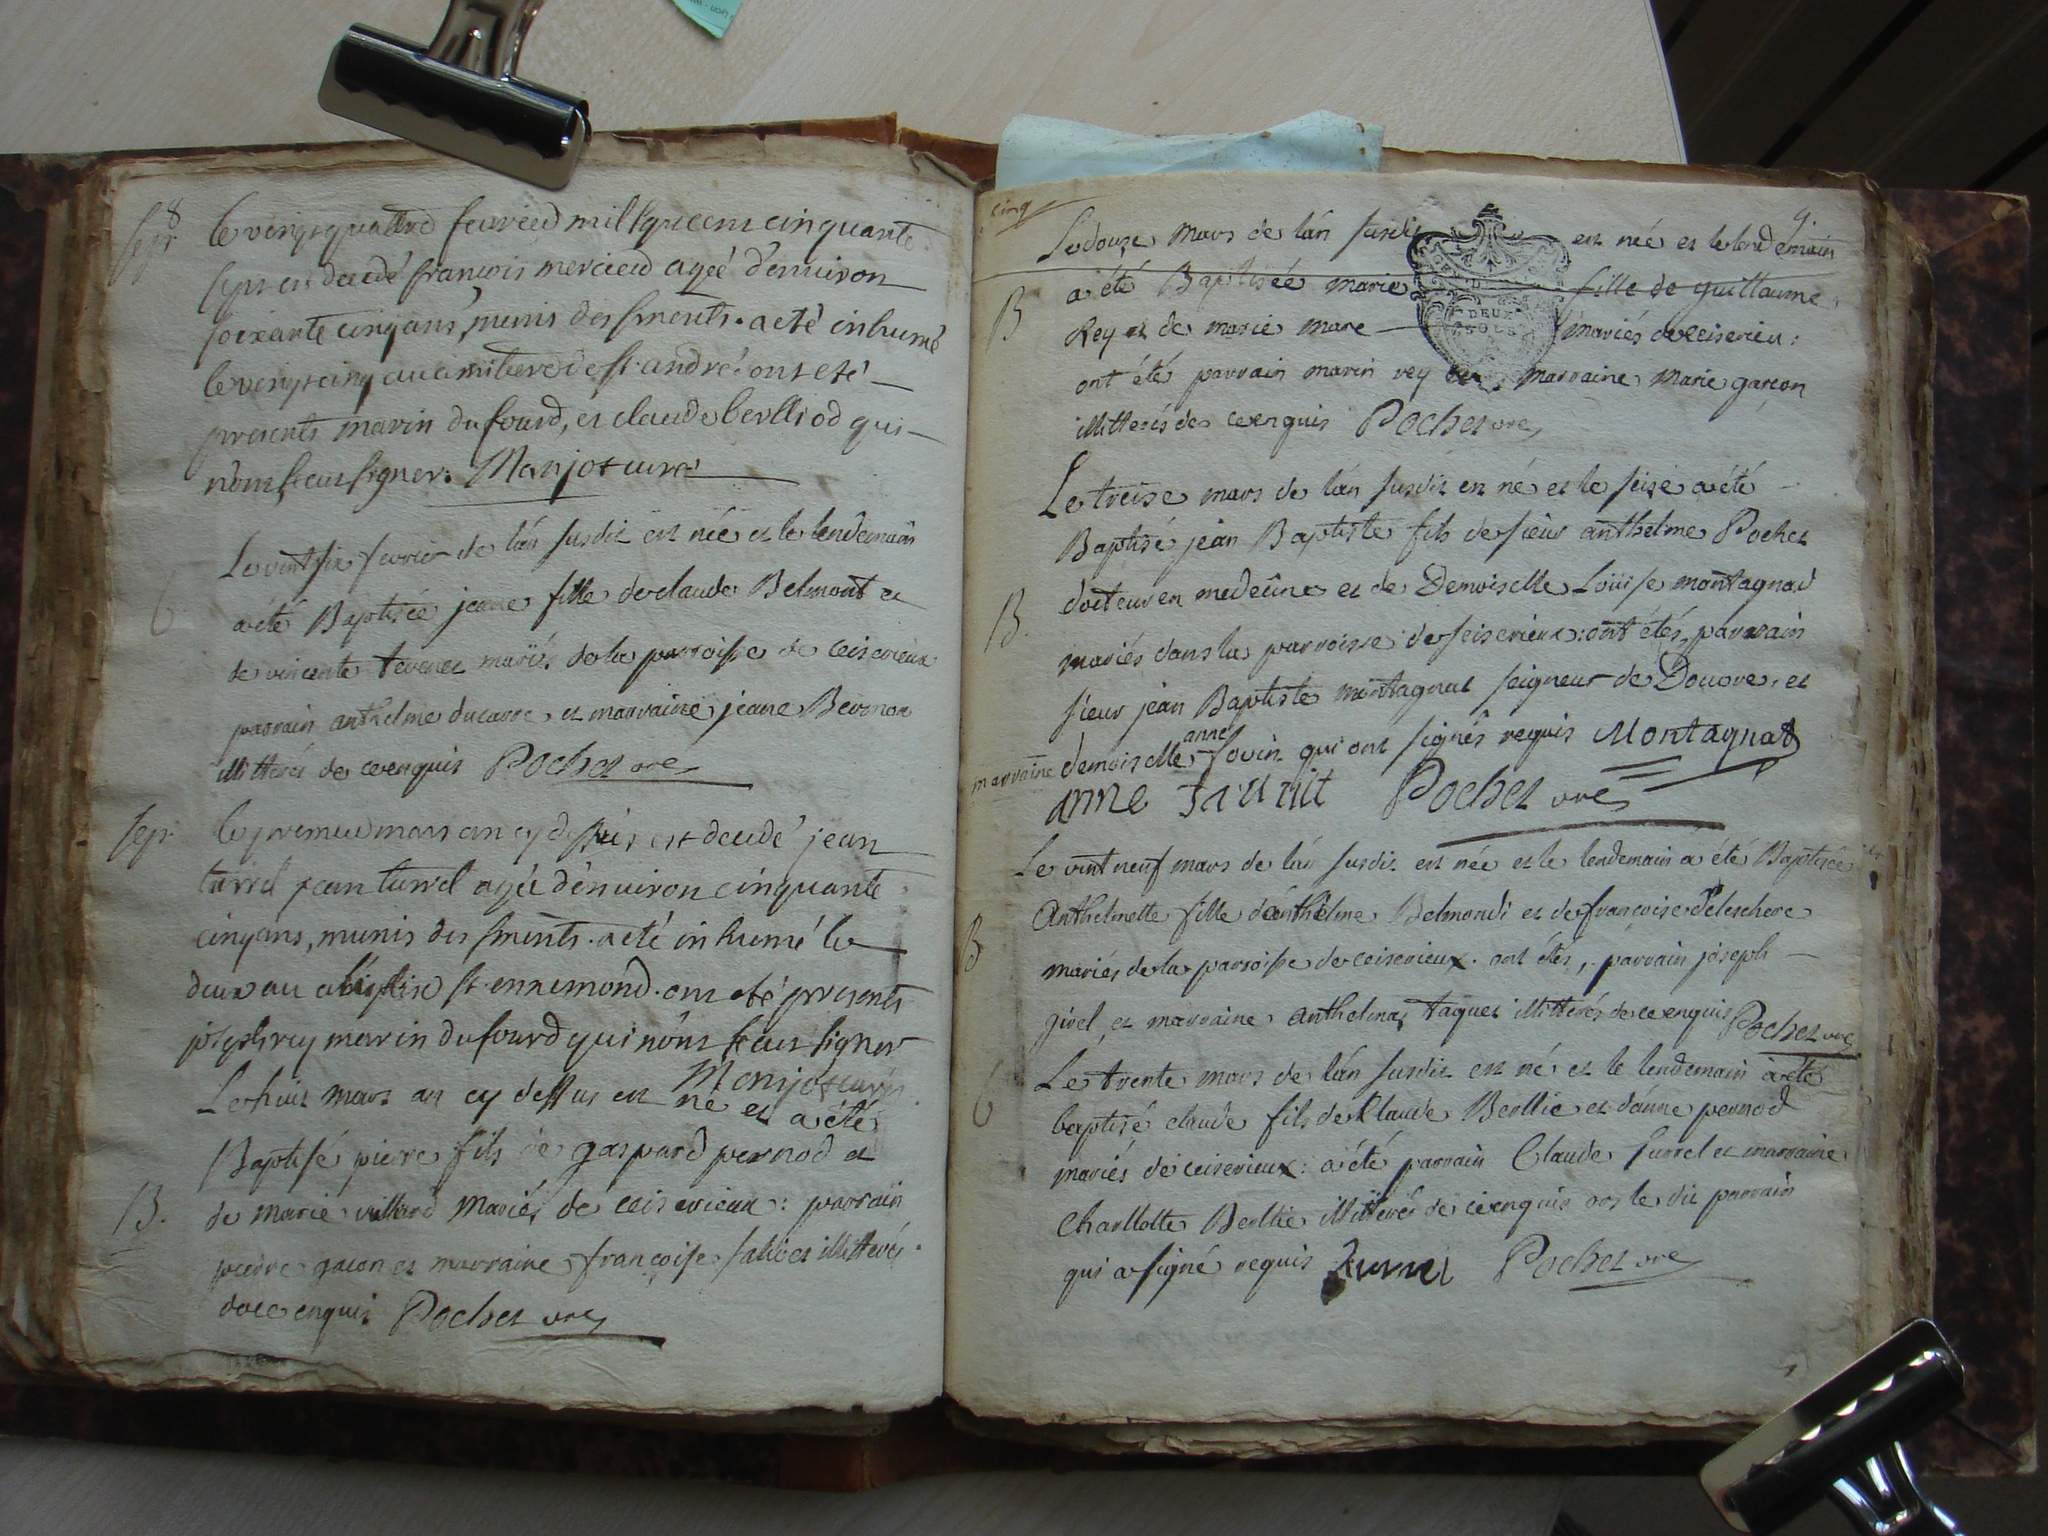 8
sep.r le vingt quattre fevrier mil sept cens cinquante
sept est decedé françois mercier agée d'environ
soixante cinq ans, munis des srments. a eté inhumé
le vingt cinq au cimitiere de st. andré. ont eté
presents marin dufourd, et claude berlliod qui
n'ont sceus signer. Monjot curé
Le vint six fevrier de lán susdit est née et le lendemain
a été Baptisée jeane fille de claude Belmont et
de vincente tevenet mariés de la parroisse de Ceiserieux
parrain anthelme ducarre et marraine jeane Bernon
illitterés de ce enquis Pochet vre
sepr. le premier mars an cy dessus est decedé jean
turrel jean turrel agée d'environ cinquante
cinq ans, munis des srments. a eté inhumé le
deux au st. ennemond. ont eté presents
joseph rey marin dufourd qui n'ont sceus signer
Monjot curé
Le huit mars an cy dessus est né et a été
Baptisé pierre fils de gaspard pernod et
B. de marie villard Mariés de ceiserieux: parrain
pierre gacon et marraine françoise illitterés
de ce enquis Pochet vre
cinq
9.
Le douze mars de lán susdit est née et le lendemain
B a été Baptisée marie fille de guillaume
DEUX SOLS
Rey et de marie mare mariés de ceiserieu:
ont été parrain marin rey et marraine Marie garçon
illitterés de ce enquis Pochet vre
Le treise mars de lán susdit est né et le seise a été
Baptisé jean Baptiste fils de sieur anthelme Pochet
B. docteur en medecine et de Demoiselle Loüise montagnad
mariés dans la parroisse de seiserieux: ont étés parrain
sieur jean Baptiste montagnat seigneur de Douvre, et
marraine demoiselle anne jovin qui ont signés requis Montagnat
anne Pochet vre
Le vint neuf mars de lán susdit est née et le lendemain a été Baptisée
Anthelmette fille dánthelme Belmond et de françoise deleschere
B mariés de la parroisse de ceiserieux. ont étés, parrain joseph
givel et marraine anthelma taguet illitterés de ce enquis Pochet vre
Le trente mars de lán susdit est né et le lendemain a été
baptisé claude fils de Claude Berllie et dánne pernod
mariés de ceiserieux: a été parrain Claude turrel et marraine
Charllotte Berllie illitterés de ce enquis ors le dit parrain
qui a signé requis Pochet vre